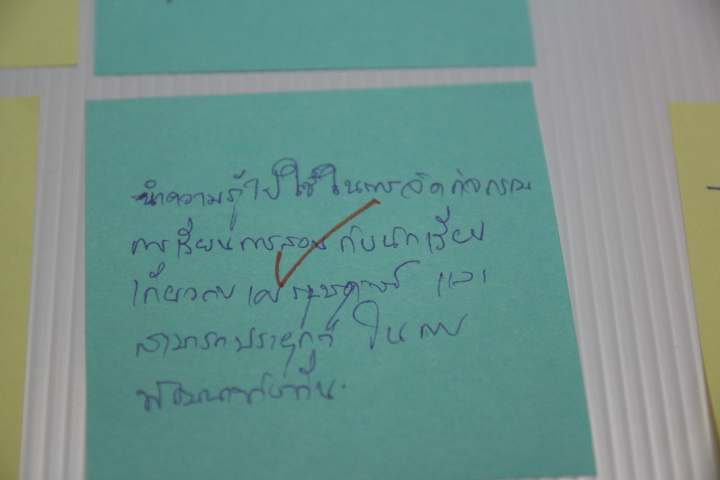 นำความรู้ไปใช้ในการจัดกิจกรรม
การเรียนการสอน กับนักเรียน
เกี่ยวกับ เศรษฐศาสตร์ และ
สามารถประยุกต์ ในการ